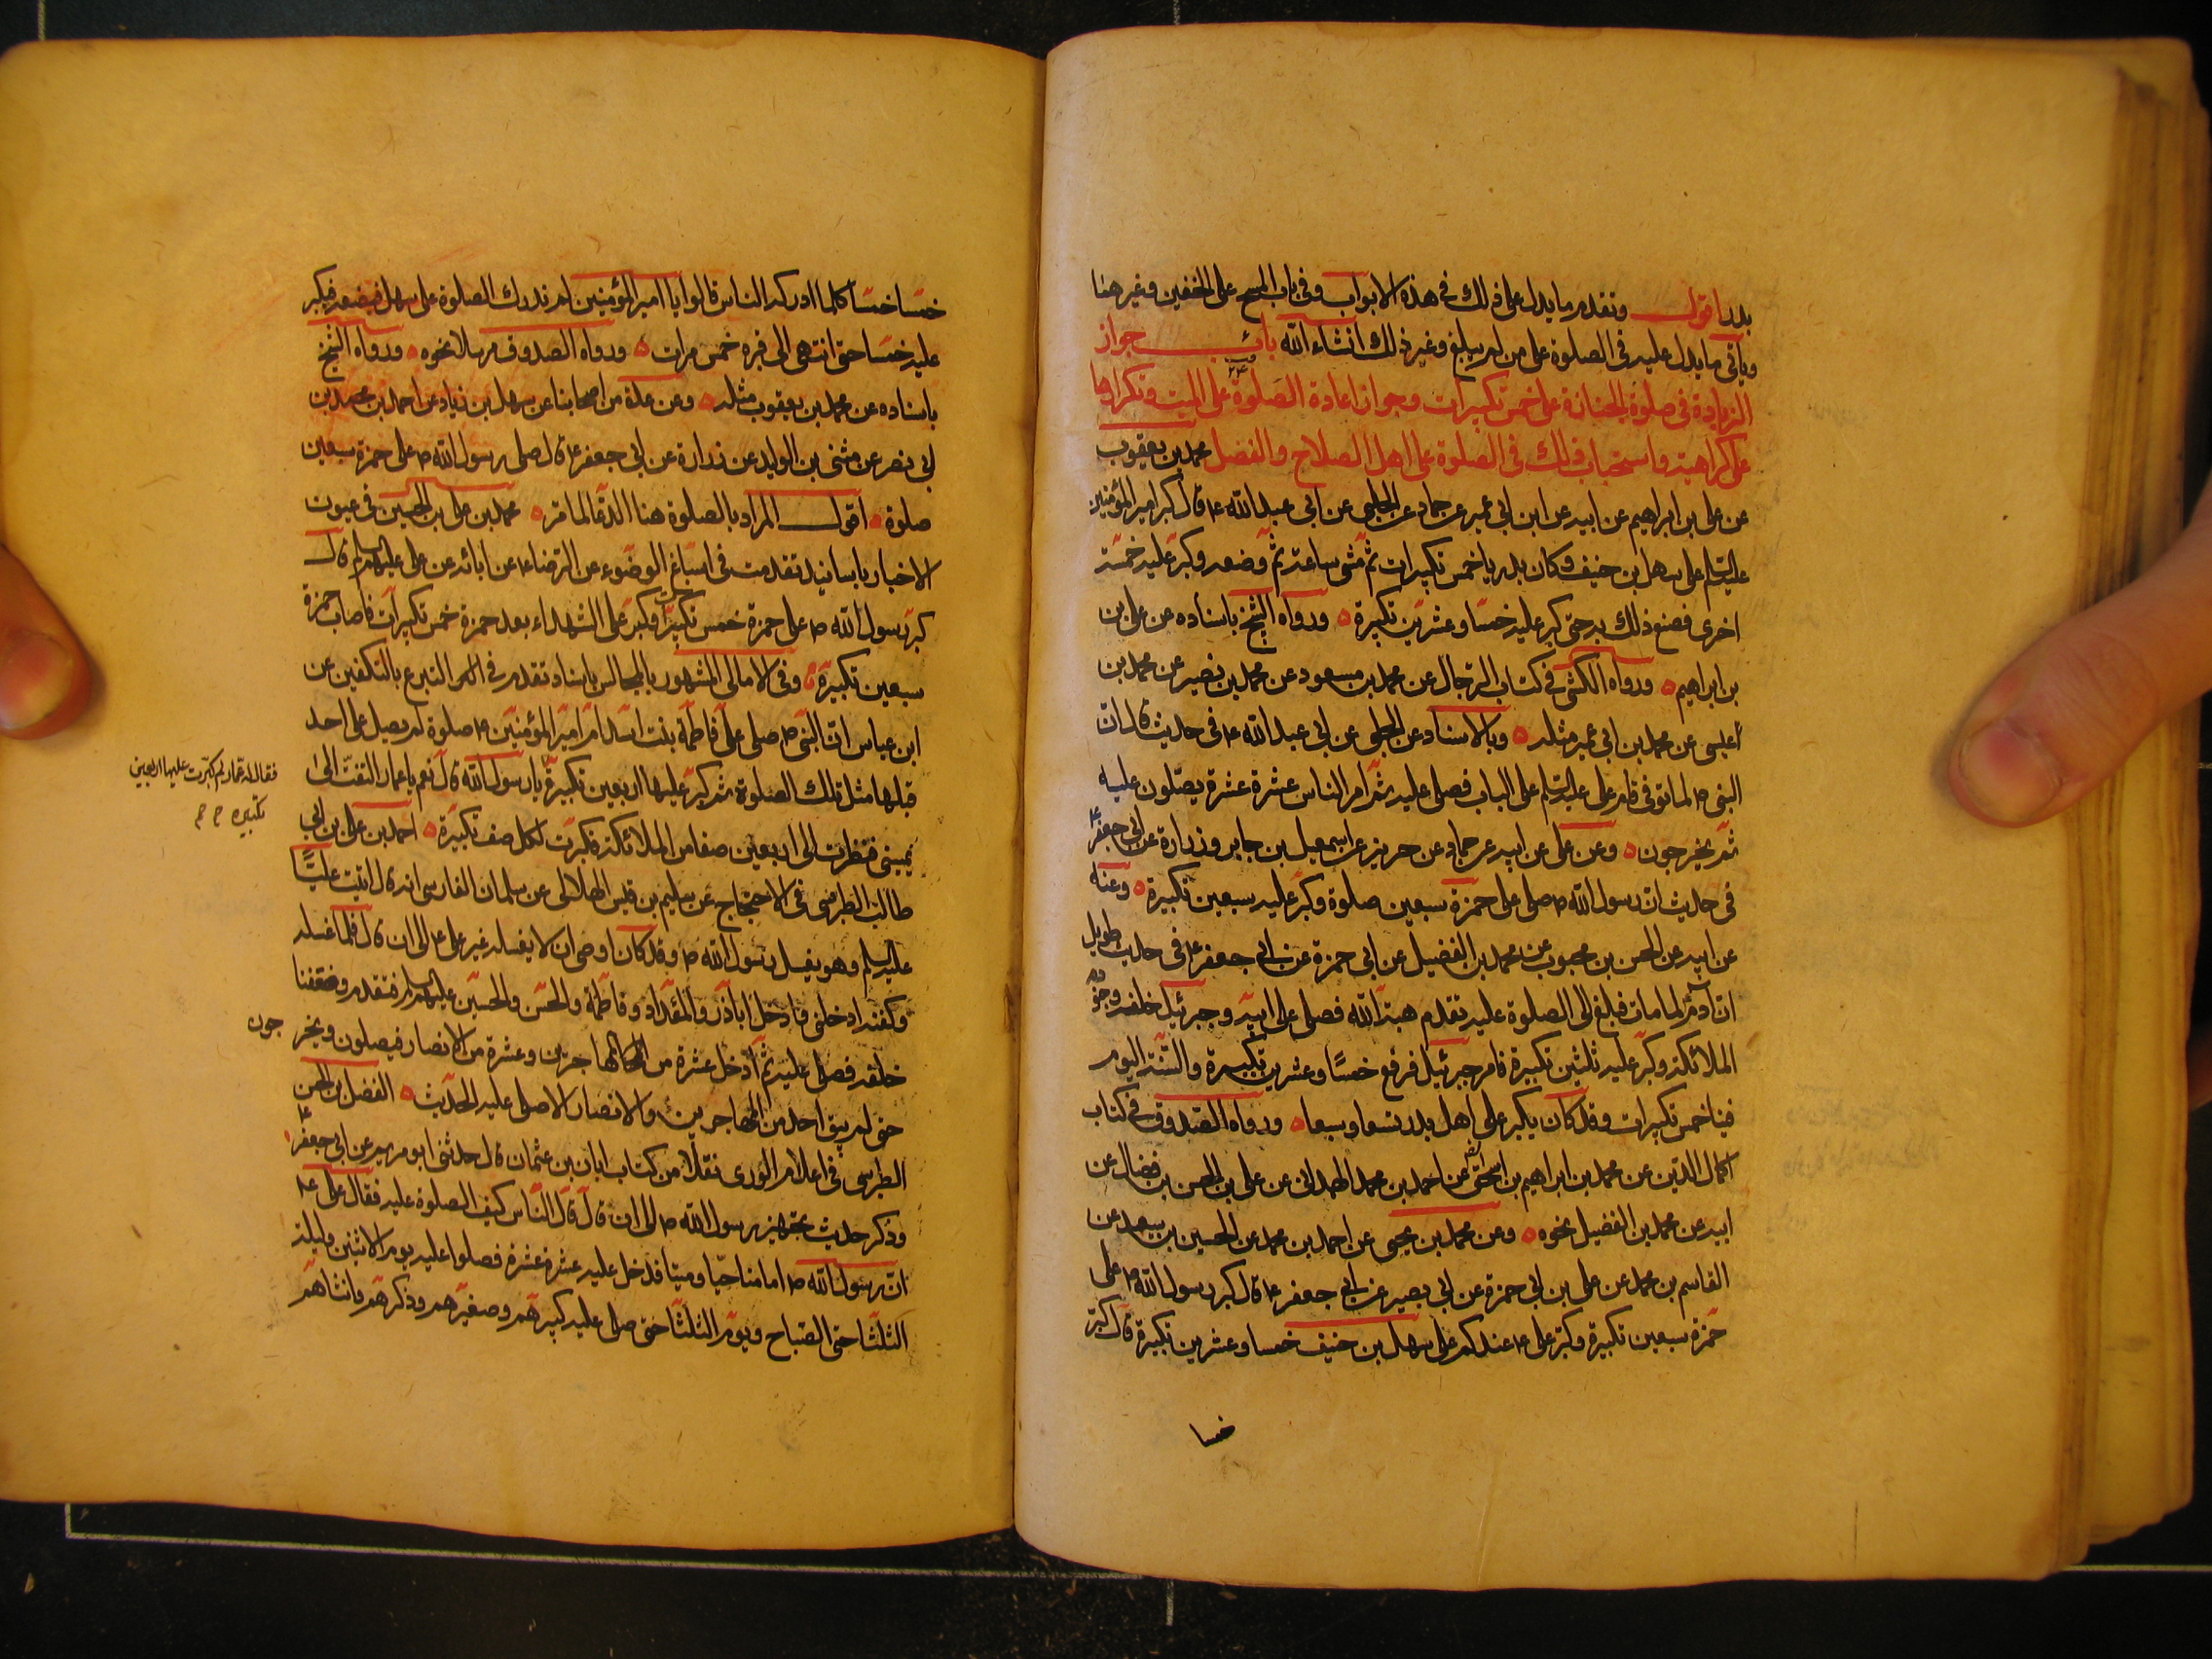 بدر اقول وتقدم ما يدل على ذلك فى هذه الابواب وفى باب المسح على الخفين وغير هنا
وياتى ما يدل عليه فى الصلوة على من لم يبلغ وغير ذلك انشاء الله باب جواز
الزيادة فى صلوة الجنازة على خمس تكبيرات وجواز اعادة الصلوة على الميت وتكرارها
على كراهية واستحباب ذلك فى الصلوة على اهل الصلاح والفضل محمد بن يعقوب
عن على بن ابراهيم عن ابيه عن ابن ابى عمير عن حماد عن الحلبى عن ابى عبد الله ع قال كبر امير المؤمنين
عليه السلم على سهل بن حنيف وكان بدريا خمس تكبيرات ثم مشى ساعة ثم وضعه وكبر عليه خمسة
اخرى فصنع ذلك به حتى كبر عليه خمسا وعشرين تكبيرة ورواه الشيخ باسناده عن على بن
بن ابراهيم ورواه الكشى فى كتاب الرجال عن محمد بن مسعود عن محمد بن نصير عن محمد بن
عيسى عن محمد بن ابى عمير مثله وبالاسناد عن الحلبى عن ابى عبد الله ع فى حديث قال ان
النبى ص لما توفى قام على عليه السلم على الباب فصلى عليه ثم امر الناس عشرة عشرة يصلون عليه
ثم يخرجون وعن على عن ابيه عن حماد عن حريز عن اسمعيل بن جابر وزرارة عن ابى جعفر ع
فى حديث ان رسول الله ص صلى على حمزة سبعين صلوة وكبر عليه سبعين تكبيرة وعنه
عن ابيه عن الحسن بن محبوب عن محمد بن الفضيل عن ابى حمزة عن ابى جعفر ع فى حديث طويل
ان آدم لما مات فبلغ الى الصلوة عليه تقدم هبة الله فصلى على ابيه وجبرئيل خلفه وجنود
الملائكة وكبر عليه ثلثين تكبيرة فامر جبرئيل فرفع خمسا وعشرين تكبيرة والسنة اليوم
فينا خمس تكبيرات وقد كان يكبر على اهل بدر تسعا وسبعا ورواه الصدوق فى كتاب
اكمال الدين عن محمد بن ابراهيم بن اسحق عن احمد بن محمد الهمدانى عن على بن الحسن بن فضال عن
ابيه عن محمد بن الفضيل نحوه وعن محمد بن يحيى عن احمد بن محمد عن الحسين بن سعيد عن
القاسم بن محمد عن على بن ابى حمزة عن ابى بصير عن ابى جعفر ع قال كبر رسول الله ص على
حمزة سبعين تكبيرة وكبر على ع عندكم على سهل بن حنيف خمسا وعشرين تكبيرة قال كبر
خمسا
خمسا خمسا كلما ادركه الناس قالوا يا امير المؤمنين لم ندرك الصلوة على سهل فيضعه فيكبر
عليه خمسا حتى انتهى الى قبره خمس مرات ورواه الصدوق مرسلا نحوه ورواه الشيخ
باسناده عن محمد بن يعقوب مثله وعن عدة من اصحابنا عن سهل بن زياد عن احمد بن محمد بن
ابى نصر عن مثنى بن الوليد عن زرارة عن ابى جعفر ع قال صلى رسول الله ص على حمزة سبعين
صلوة اقول المراد بالصلوة هنا الدعا لما مر محمد بن على بن الحسين فى عيون
الاخبار باسانيد تقدمت فى اسباغ الوضوء عن الرضاء ع عن ابائه عن على عليهم السلم قال
كبر رسول الله ص على حمزة خمس تكبيرات وكبر على الشهداء بعد حمزة خمس تكبيرات فاصاب حمزة
سبعين تكبيرة وفى الامالى المشهور بالمجالس باسناد تقدم فى التبرع بالتكفين عن
ابن عباس ان النبى ص صلى على فاطمة بنت اسد ام امير المؤمنين ع صلوة لم يصل على احد
قبلها مثل تلك الصلوة ثم كبر عليها اربعين تكبيرة يا رسول الله قال نعم يا عمار التفت الى
فقال له عمار لم كبرت عليها اربعين
تكبيرة
يمينى فنظرت الى اربعين صفا من الملائكة فكبرت لكل صف تكبيرة احمد بن على بن ابى
طالب الطبرسى فى الاحتجاج عن سليم بن قيس الهلالى عن سلمان الفارسى انه قال اتيت عليا
عليه السلم وهو يغسل رسول الله ص وقد كان اوصى ان لا يغسله غير على ع الى ان قال فلما غسله
وكفنه ادخلنى وادخل اباذر والمقداد وفاطمة والحسن والحسين عليهم السلم فتقدم وصففنا
خلفه فصلى عليه ثم ادخل عشرة من المهاجرين وعشرة من الانصار فيصلون ويخر جون
حتى لم يبق احد من المهاجرين والانصار الا صلى عليه الحديث الفضل بن الحسن
الطبرسى فى اعلام الورى نقلا من كتاب ابان بن عثمان قال حدثنى ابو مريم عن ابى جعفر ع
وذكر حديث تجهيز رسول الله ص الى ان قال قال الناس كيف الصلوة عليه فقال على ع
ان رسول الله ص امامنا حيا وميتا فدخل عليه عشرة عشرة فصلوا عليه يوم الاثنين وليلة
الثلثا حتى الصباح ويوم الثلثا حتى صلى عليه كبيرهم وصغيرهم وذكرهم وانثاهم